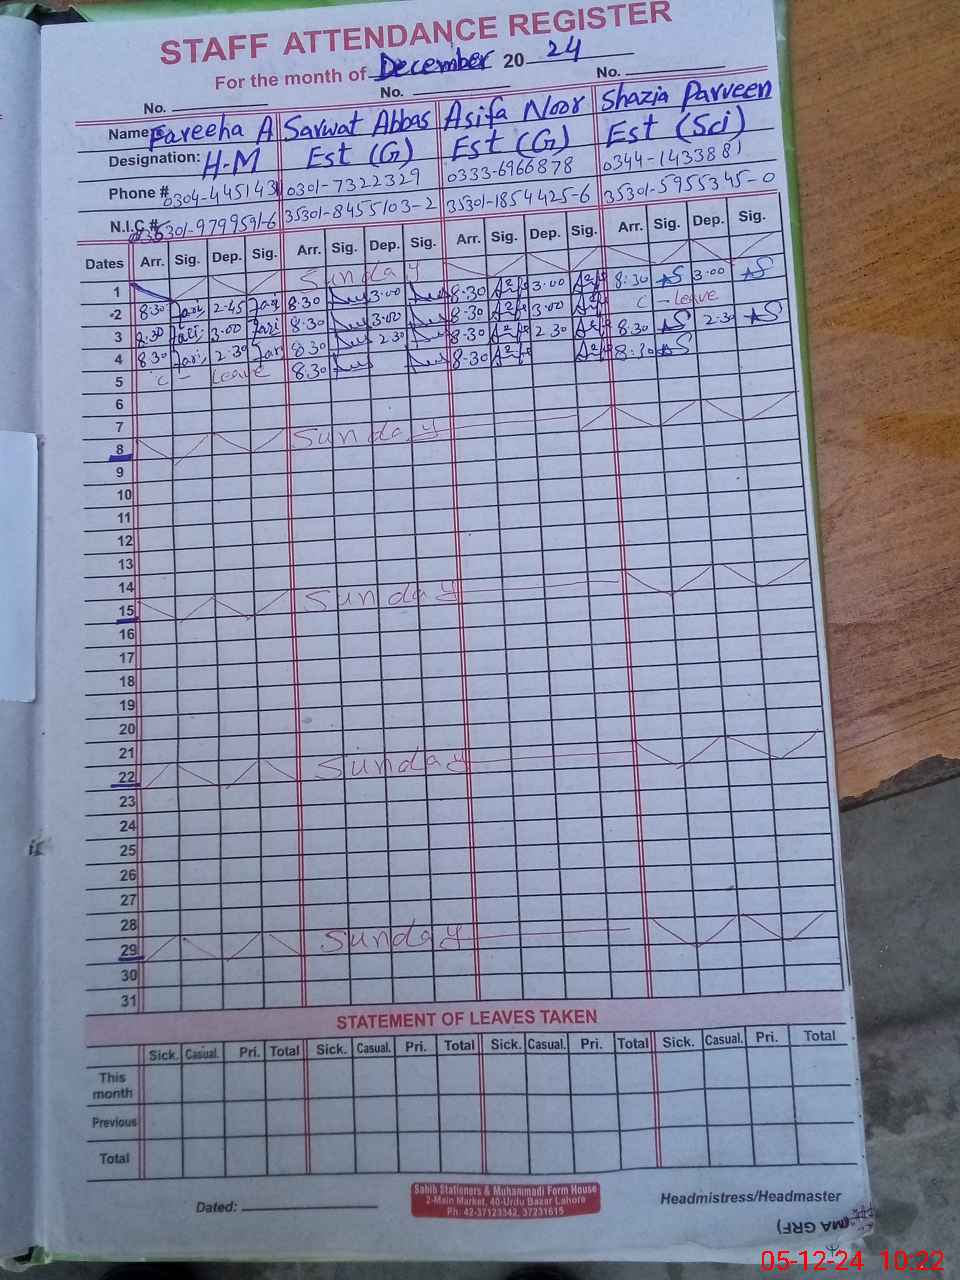 STAFF ATTENDANCE REGISTER
For the month of December 20 24
No. No. No.
Name: Fareeha A Sarwat Abbas Asifa Noor Shazia Parveen
Designation: H-M Est (G) Est (G) Est (Sci)
Phone # 0304-445143 0301-7322329 0333-6966878 0344-1433881
N.I.C.# 35301-9799591-6 35301-8455103-2 35301-1854425-6 35301-5955345-0
Dates Arr. Sig. Dep. Sig. Arr. Sig. Dep. Sig. Arr. Sig. Dep. Sig. Arr. Sig. Dep. Sig.
1 Sunday
2 8:30 2-45 8:30 3:00 8:30 3:00 8:30 3:00
3 8:30 3:00 8:30 3:00 8:30 3:00 C - Leave
4 8:30 2-30 8:30 2-30 8:30 2-30 8:30 2-30
5 C - Leave 8:30 8:30 8:30
6
7
8 Sunday
9
10
11
12
13
14
15 Sunday
16
17
18
19
20
21
22 Sunday
23
24
25
26
27
28
29 Sunday
30
31
STATEMENT OF LEAVES TAKEN
Sick. Casual. Pri. Total Sick. Casual. Pri. Total Sick. Casual. Pri. Total Sick. Casual. Pri. Total
This
month
Previous
Total
Dated:
Sabib Stationers & Muhammadi Form House
2-Main Market, 40-Urdu Bazar Lahore
Ph: 42-37123342, 37231615
Headmistress/Headmaster
(MA GRF)
05-12-24 10:22